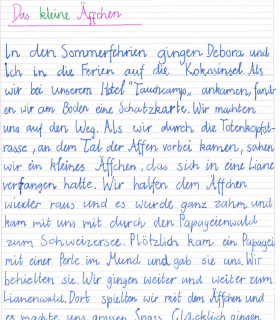 Das kleine Äffchen
In den Sommerfehrien gingen Debora und
Ich in die Ferien auf die Kokosinsel. Als
wir bei unserem Hotel "Tauchcamp" ankamen, fand-
en wir am Boden eine Schatzkarte. Wir machten
uns auf den Weg. Als wir durch die Totenkopfst-
rasse, an dem Tal der Affen vorbei kamen, sahen
wir ein kleines Äffchen, das sich in eine Liane
verfangen hatte. Wir halfen dem Äffchen
wieder raus und es wurde ganz zahm und
kam mit uns mit durch den Papageienwald
zum Schweizersee. Plötzlich kam ein Papagei
mit einer Perle im Mund und gab sie uns. Wir
behielten sie. Wir gingen weiter und weiter zum
Lianenwald. Dort spielten wir mit dem Äffchen und
es machte uns grossen Spass. Glücklich gingen